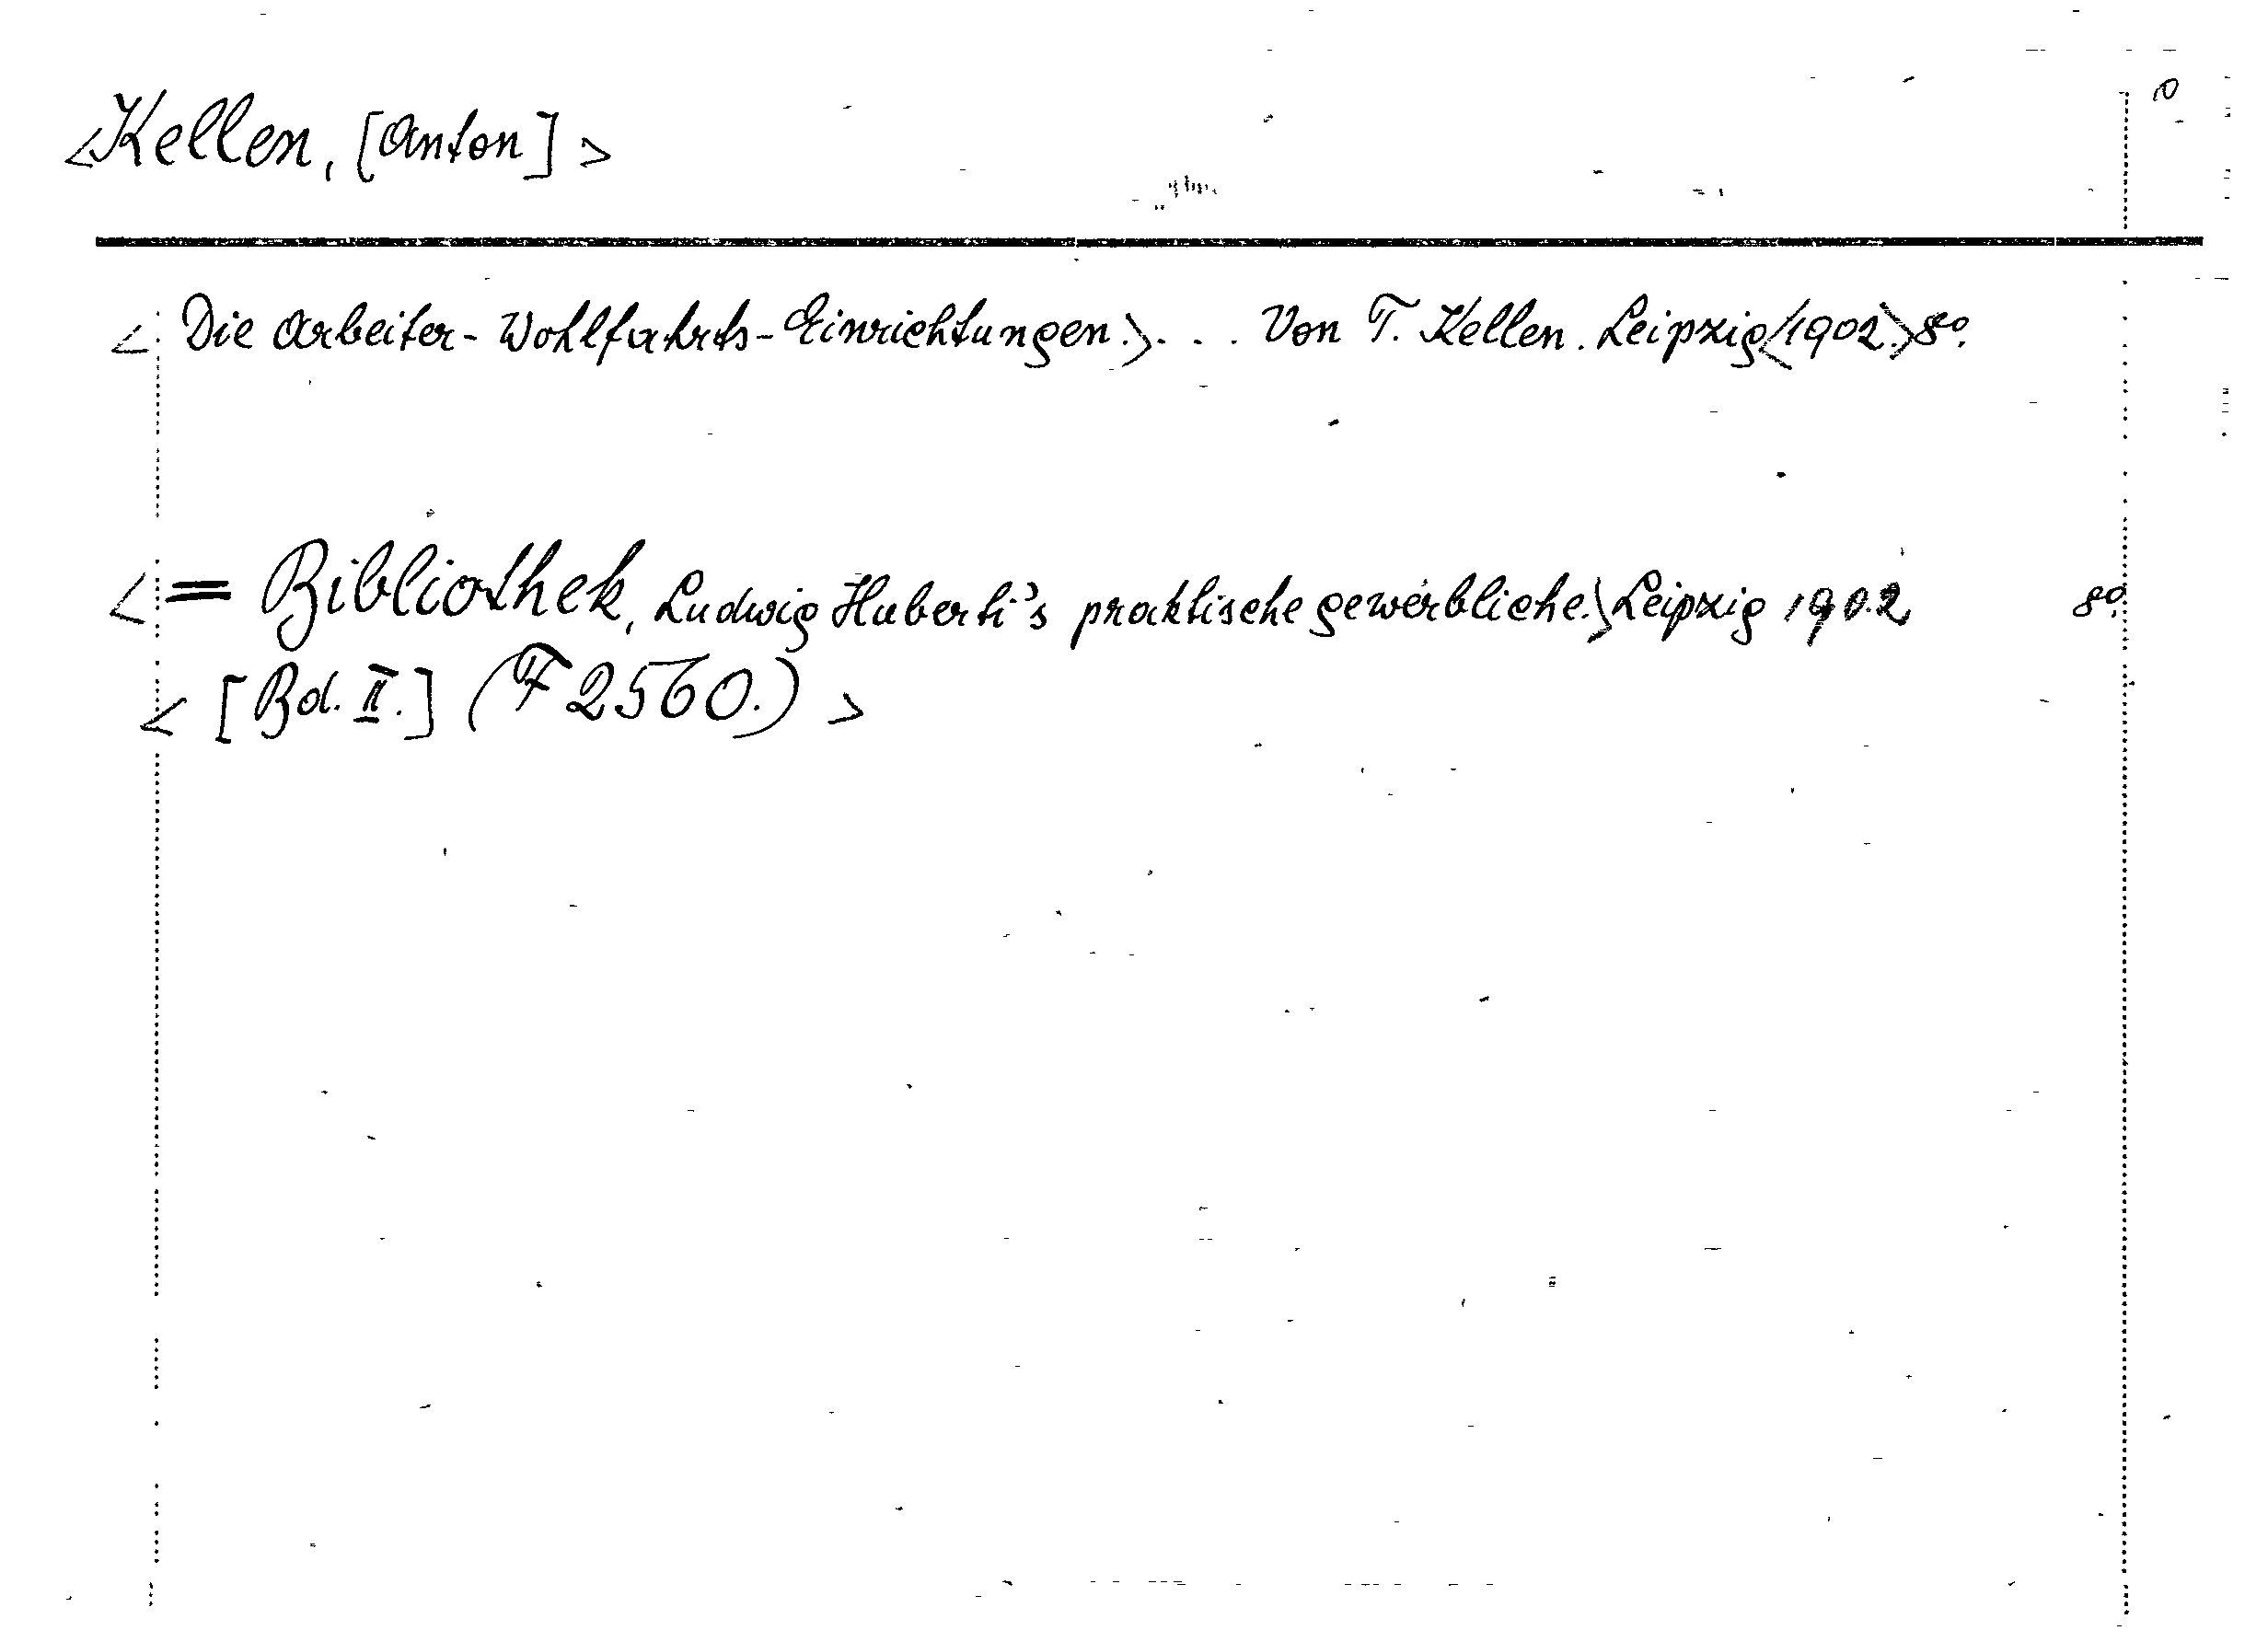 <Kellen, [Anton]>
<Die Arbeiter-Wohlfahrts-Einrichtungen.>... Von T. Kellen. Leipzig<1902.>8°.
<= Bibliothek, Ludwig Huberti's praktische gewerbliche.>Leipzig 1902 8°.
<[Bd. II.] (F 2560.)>